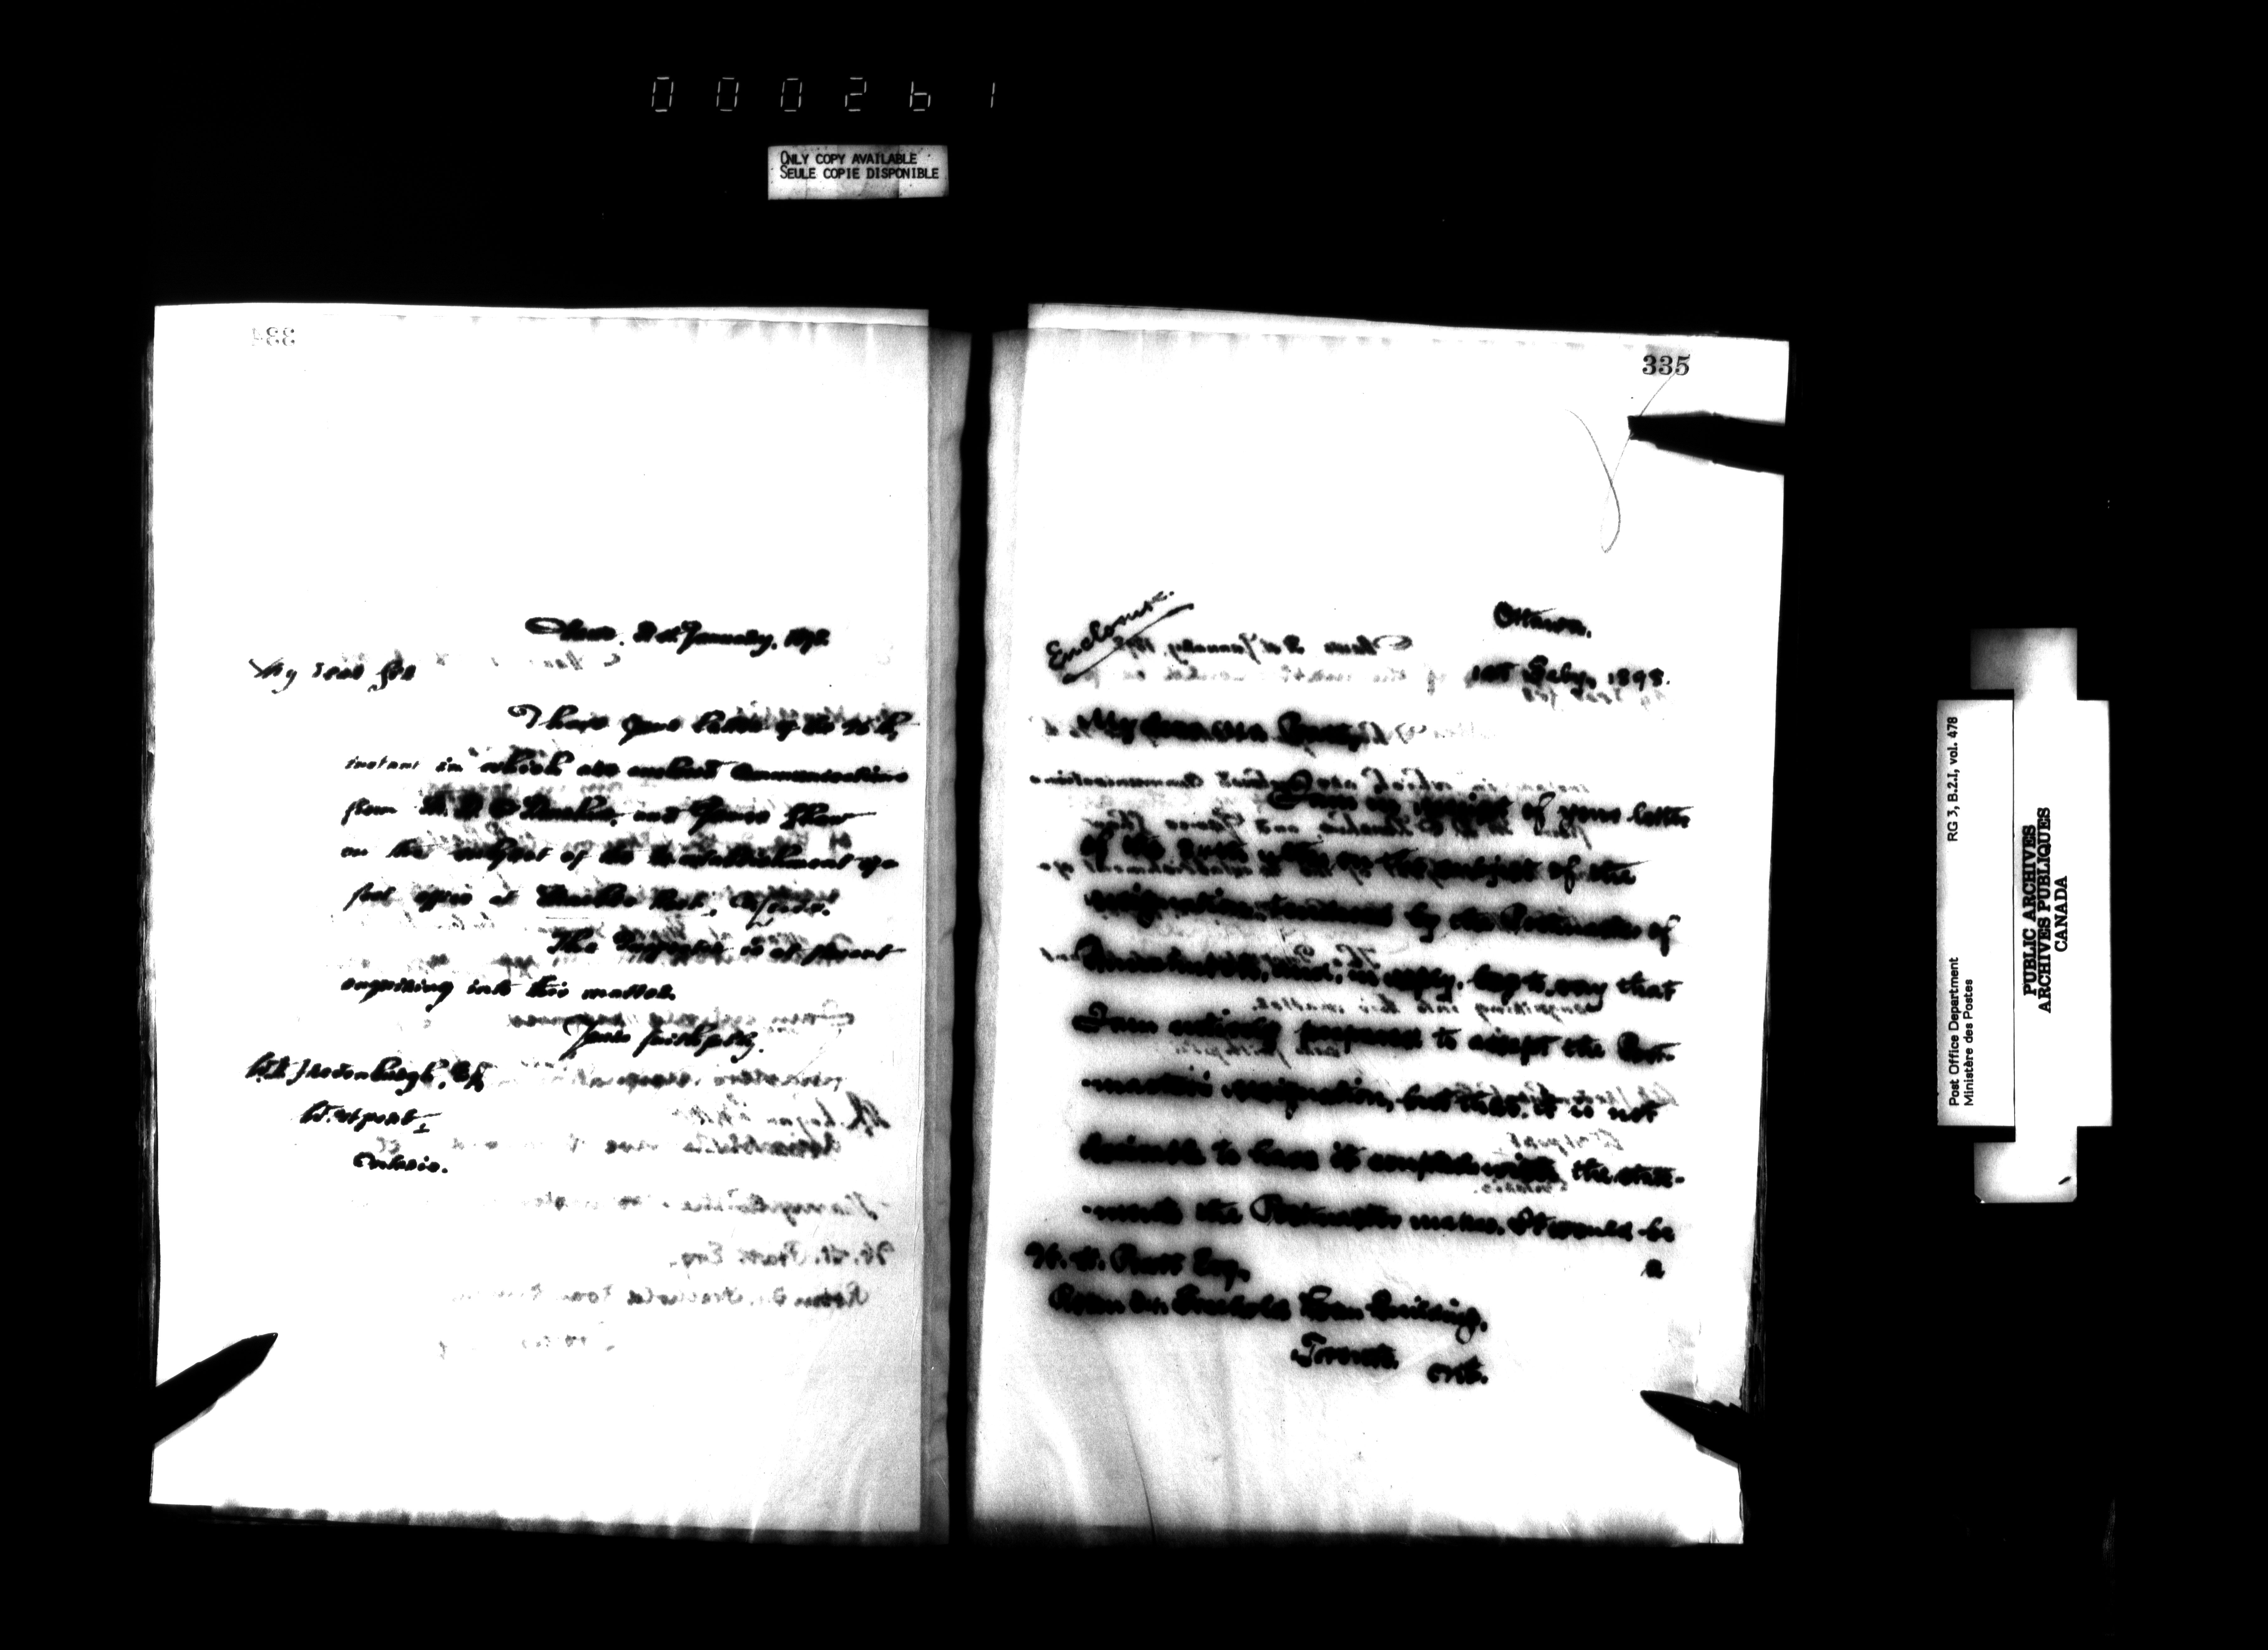 000261
ONLY COPY AVAILABLE
SEULE COPIE DISPONIBLE
334
31st January, 1898.
My dear Sir
I have your letter of the
instant in which are enclosed communications
from and James Shaw
on the subject of the re-establishment of a
post office at
The Inspector is at present
enquiring into this matter.
Yours faithfully,
Esq
Westport,
Ontario.
335
Enclosure.
Ottawa,
1st Feby, 1898.
My dear
I am in receipt of your letter
of the on the subject of the
resignation tendered by the Postmaster of
and, in reply, beg to say that
I am entirely prepared to accept the Post-
-master's resignation, but that it is not
desirable to have it coupled with the state-
-ments the Postmaster makes. It would be
a
Esq.
Room Freehold Loan Building,
Toronto, Ont.
Post Office Department
Ministère des Postes
RG 3, B.2.I, vol. 478
PUBLIC ARCHIVES
ARCHIVES PUBLIQUES
CANADA